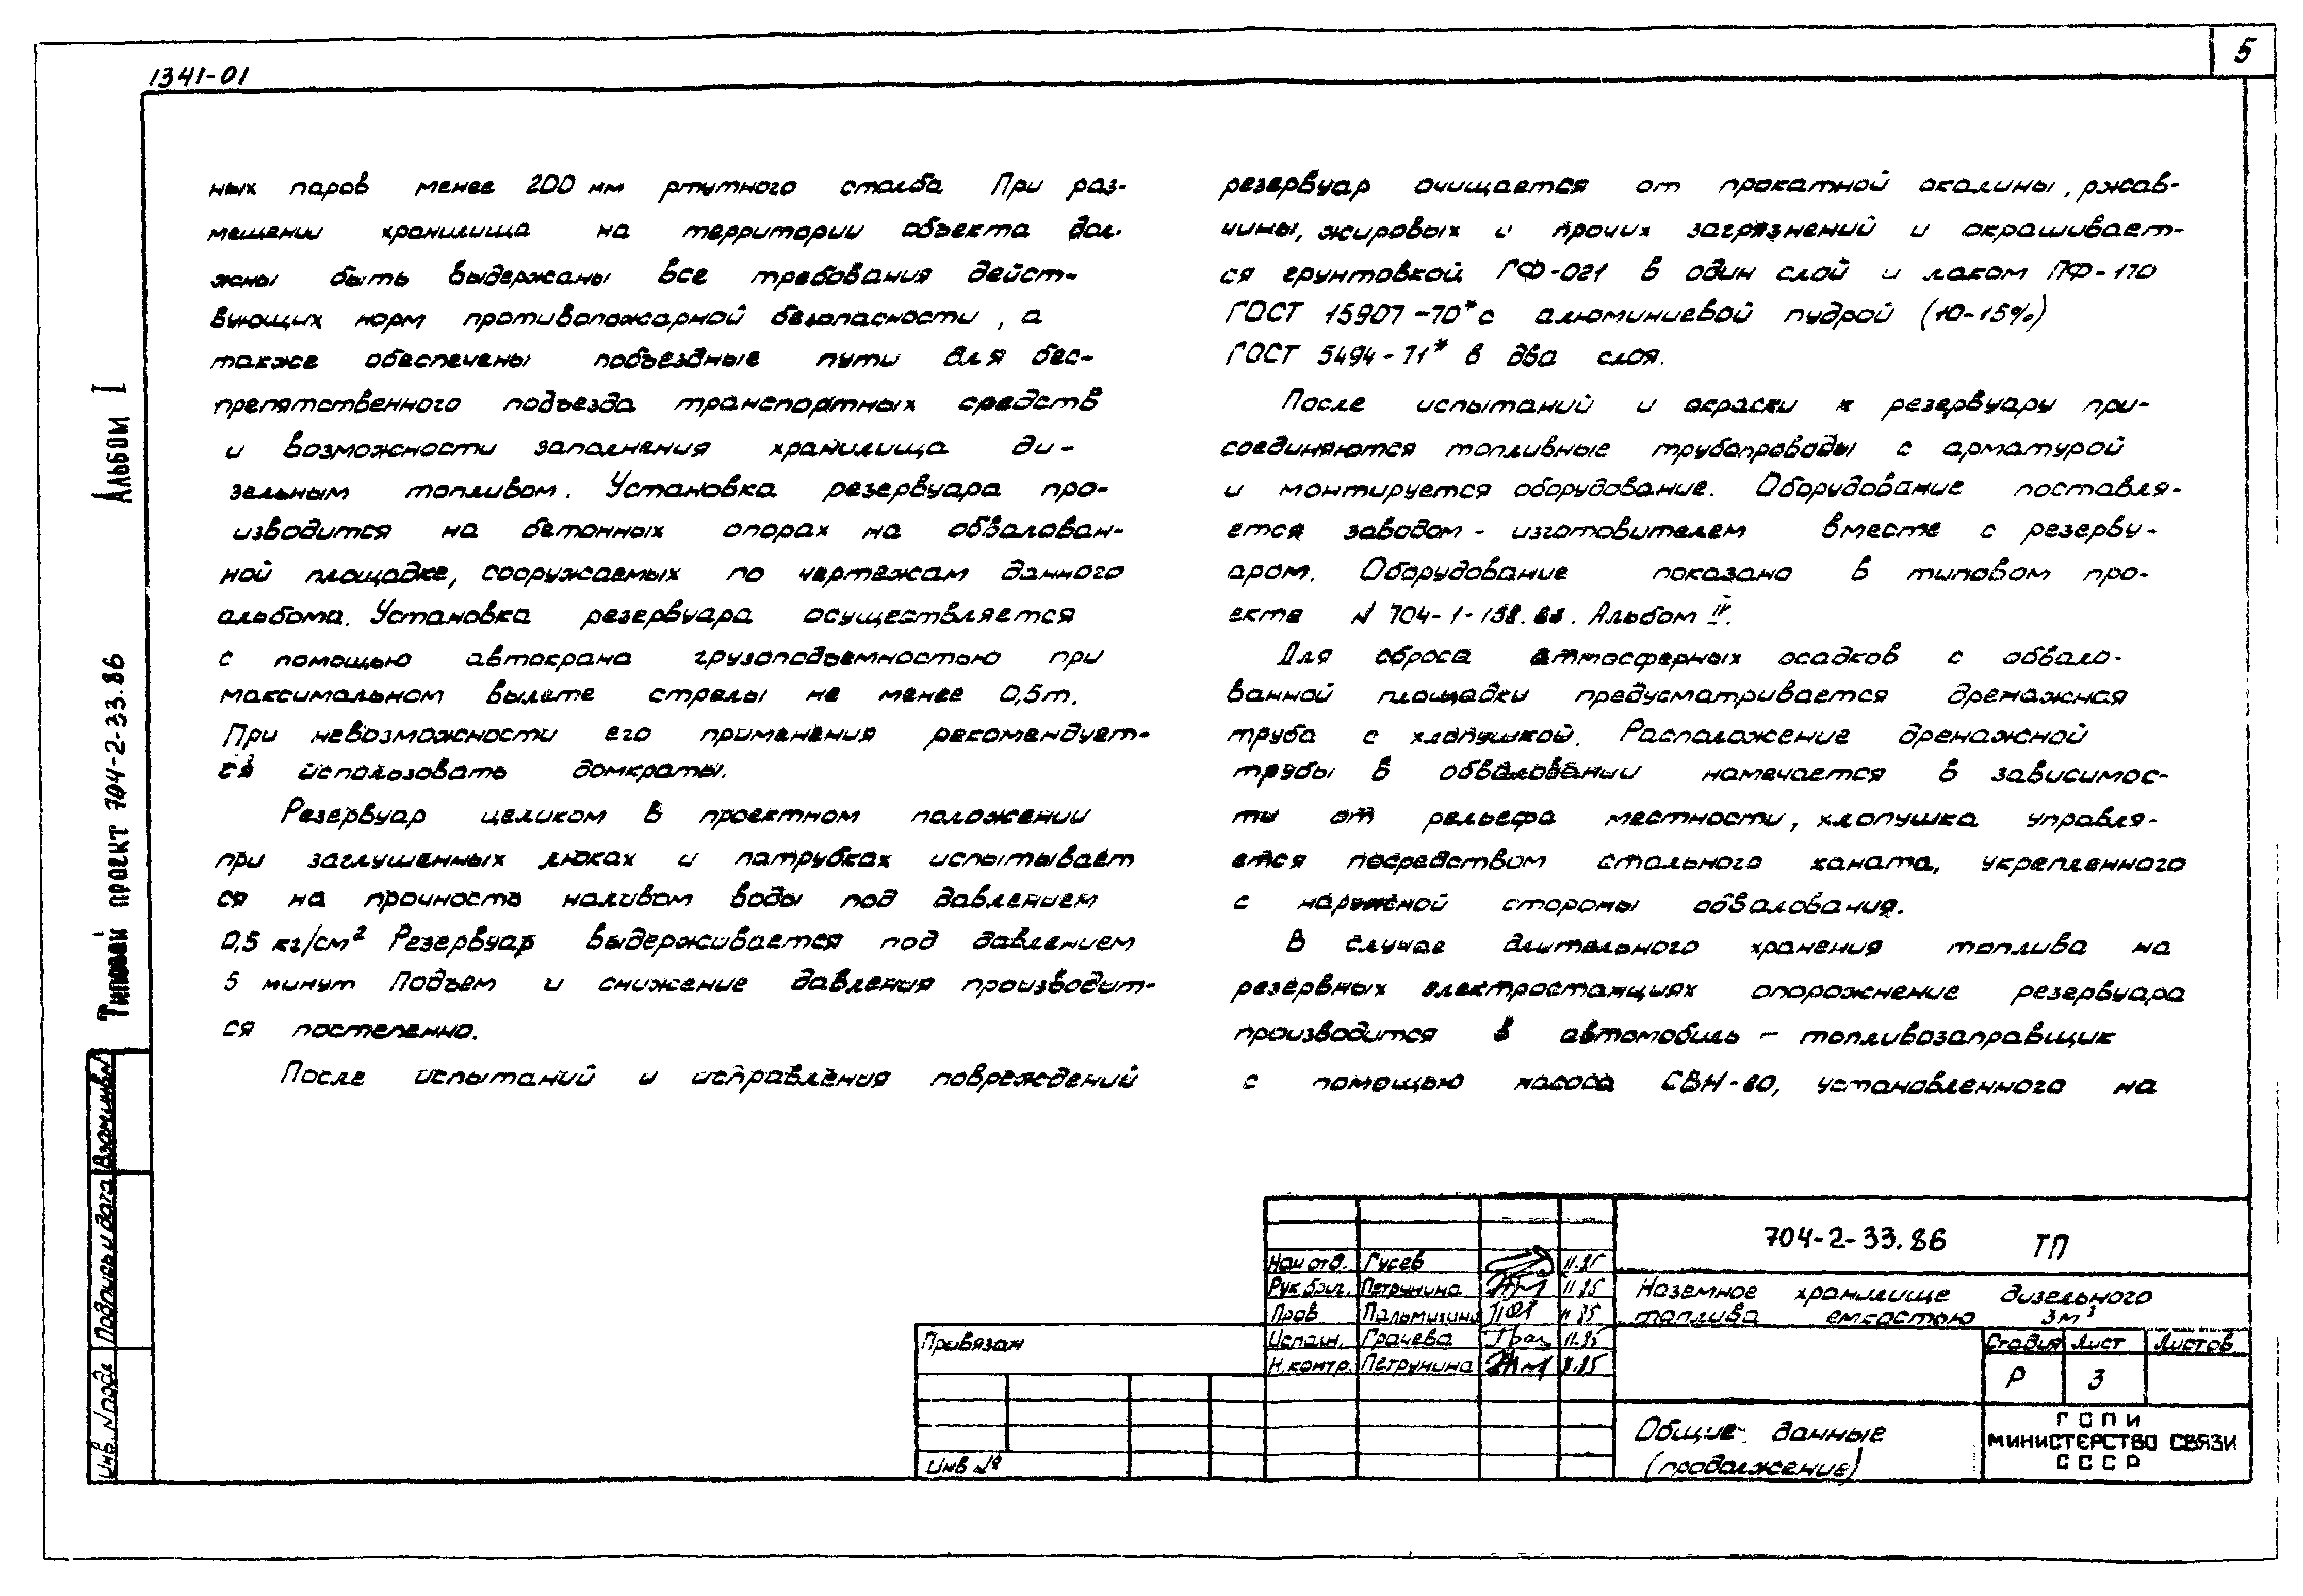 5
1341-01
ных паров менее 200 мм ртутного столба При раз-
мещении хранилища на территории объекта дол-
жны быть выдержаны все требования дейст-
вующих норм противопожарной безопасности, а
также обеспечены подъездные пути для бес-
препятственного подъезда транспортных средств
и возможности заполнения хранилища ди-
зельным топливом. Установка резервуара про-
изводится на бетонных опорах на обвалован-
ной площадке, сооружаемых по чертежам данного
альбома. Установка резервуара осуществляется
с помощью автокрана грузоподъемностью при
максимальном вылете стрелы не менее 0,5т.
При невозможности его применения рекомендует-
ся использовать домкраты.
Резервуар целиком в проектном положении
при заглушенных люках и патрубках испытывает
ся на прочность наливом воды под давлением
0,5 кг/см² Резервуар выдерживается под давлением
5 минут Подъем и снижение давления производит-
ся постепенно.
После испытаний и исправления повреждений
резервуар очищается от прокатной окалины, ржав-
чины, жировых и прочих загрязнений и окрашивает-
ся грунтовкой ГФ-021 в один слой и лаком ПФ-170
ГОСТ 15907-70* с алюминиевой пудрой (10-15%)
ГОСТ 5494-71* в два слоя.
После испытаний и окраски к резервуару при-
соединяются топливные трубопроводы с арматурой
и монтируется оборудование. Оборудование поставля-
ется заводом-изготовителем вместе с резерву-
аром. Оборудование показано в типовом про-
екте N 704-1-158.83. Альбом IV.
Для сброса атмосферных осадков с обвало-
ванной площадки предусматривается дренажная
труба с хлопушкой. Расположение дренажной
трубы в обваловании намечается в зависимос-
ти от рельефа местности, хлопушка управля-
ется посредством стального каната, укрепленного
с наружной стороны обвалования.
В случае длительного хранения топлива на
резервных электростанциях опорожнение резервуара
производится в автомобиль-топливозаправщик
с помощью насоса СВН-80, установленного на
Альбом I
Типовой проект 704-2-33.86
Взам инв.N
Подпись и дата
Инв. N подл
Привязан
Инв №
Нач отд. Гусев 11.85
Рук.бриг. Петрунина 11.85
Пров Пальмихина 11.85
Исполн. Грачева 11.85
Н.контр. Петрунина 11.85
704-2-33.86 ТП
Наземное хранилище дизельного
топлива емкостью 3м³
Стадия Лист Листов
Р 3
Общие данные
(продолжение)
ГСПИ
МИНИСТЕРСТВО СВЯЗИ
СССР